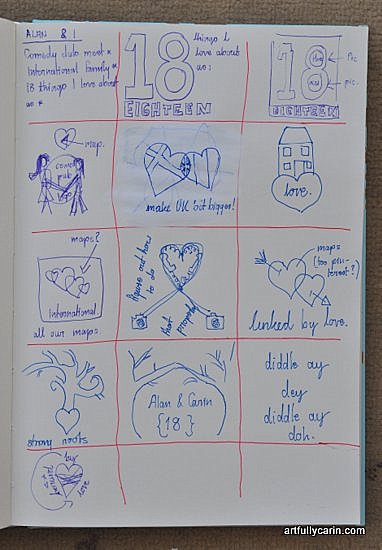 ALAN & I
Comedy club meet *
International family *
18 things I love about
us *
18
EIGHTEEN
things I
love about
us :
18
Me
pic.
EIGHTEEN
map.
comedy
pub
make UK bit bigger!
love.
maps?
International
all our maps.
figure out how
to do
that properly
maps
(too pin-
terest?)
linked by love.
strong roots
Alan & Carin
{18}
diddle ay
dey
diddle ay
doh.
by
love
artfullycarin.com